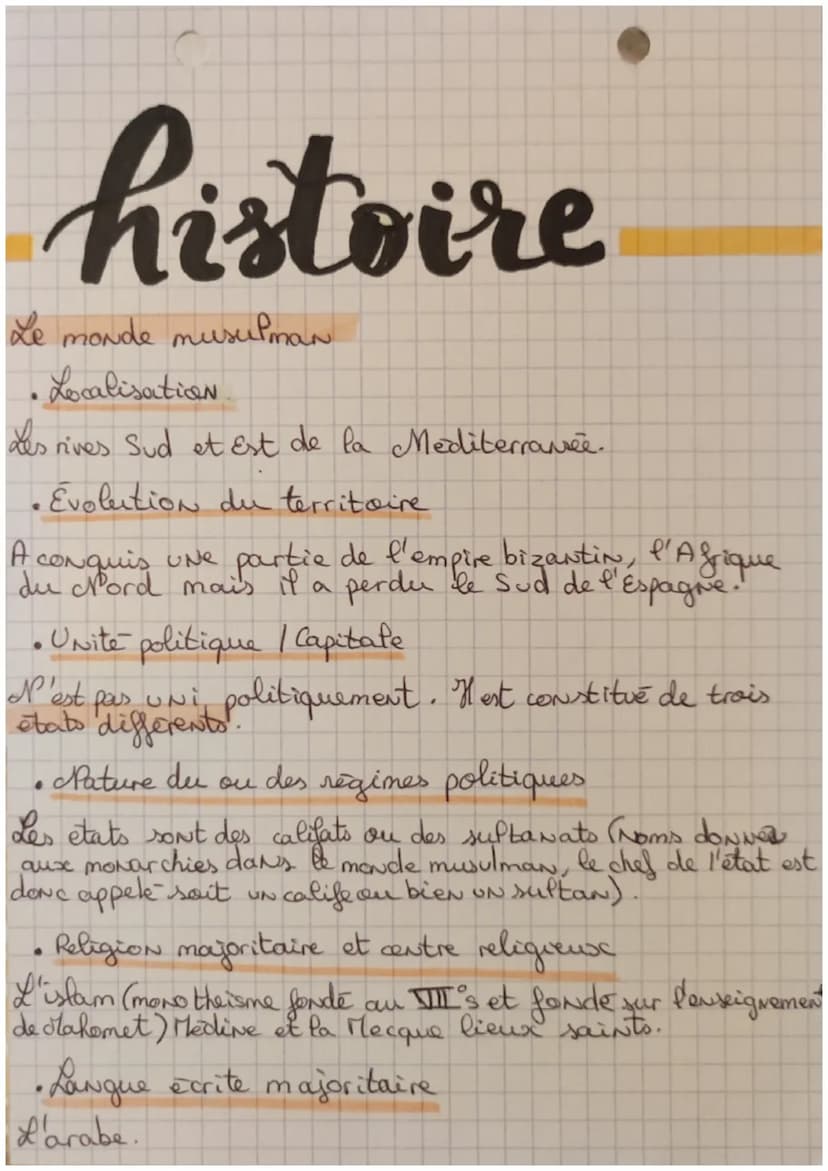 histoire
Le monde musulman
• Localisation
Les rives Sud et Est de la Méditerranée.
• Évolution du territoire
A conquis une partie de l'empire bizantin, l'Afrique
du Nord mais il a perdu le Sud de l'Espagne.
• Unité politique / Capitale
N'est pas uni politiquement. Il est constitué de trois
états différents.
• Nature du ou des régimes politiques
Les états sont des califats ou des sultanats (noms donnés
aux monarchies dans le monde musulman, le chef de l'état est
donc appelé soit un calife ou bien un sultan).
• Religion majoritaire et centre religieux
L'islam (monothéisme fondé au VIII°s et fondé sur l'enseignement
de Mahomet) Médine et la Mecque lieux saints.
• Langue écrite majoritaire
L'arabe.